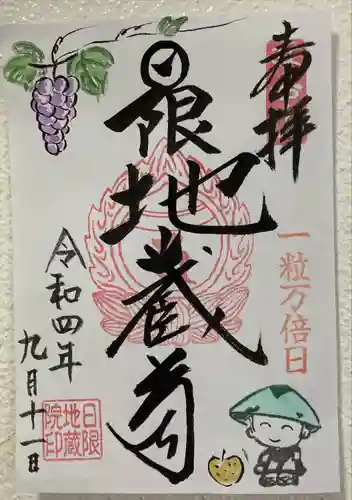 奉拝
一粒万倍日
日限地蔵尊
令和四年
九月十一日
日限
地蔵
院印